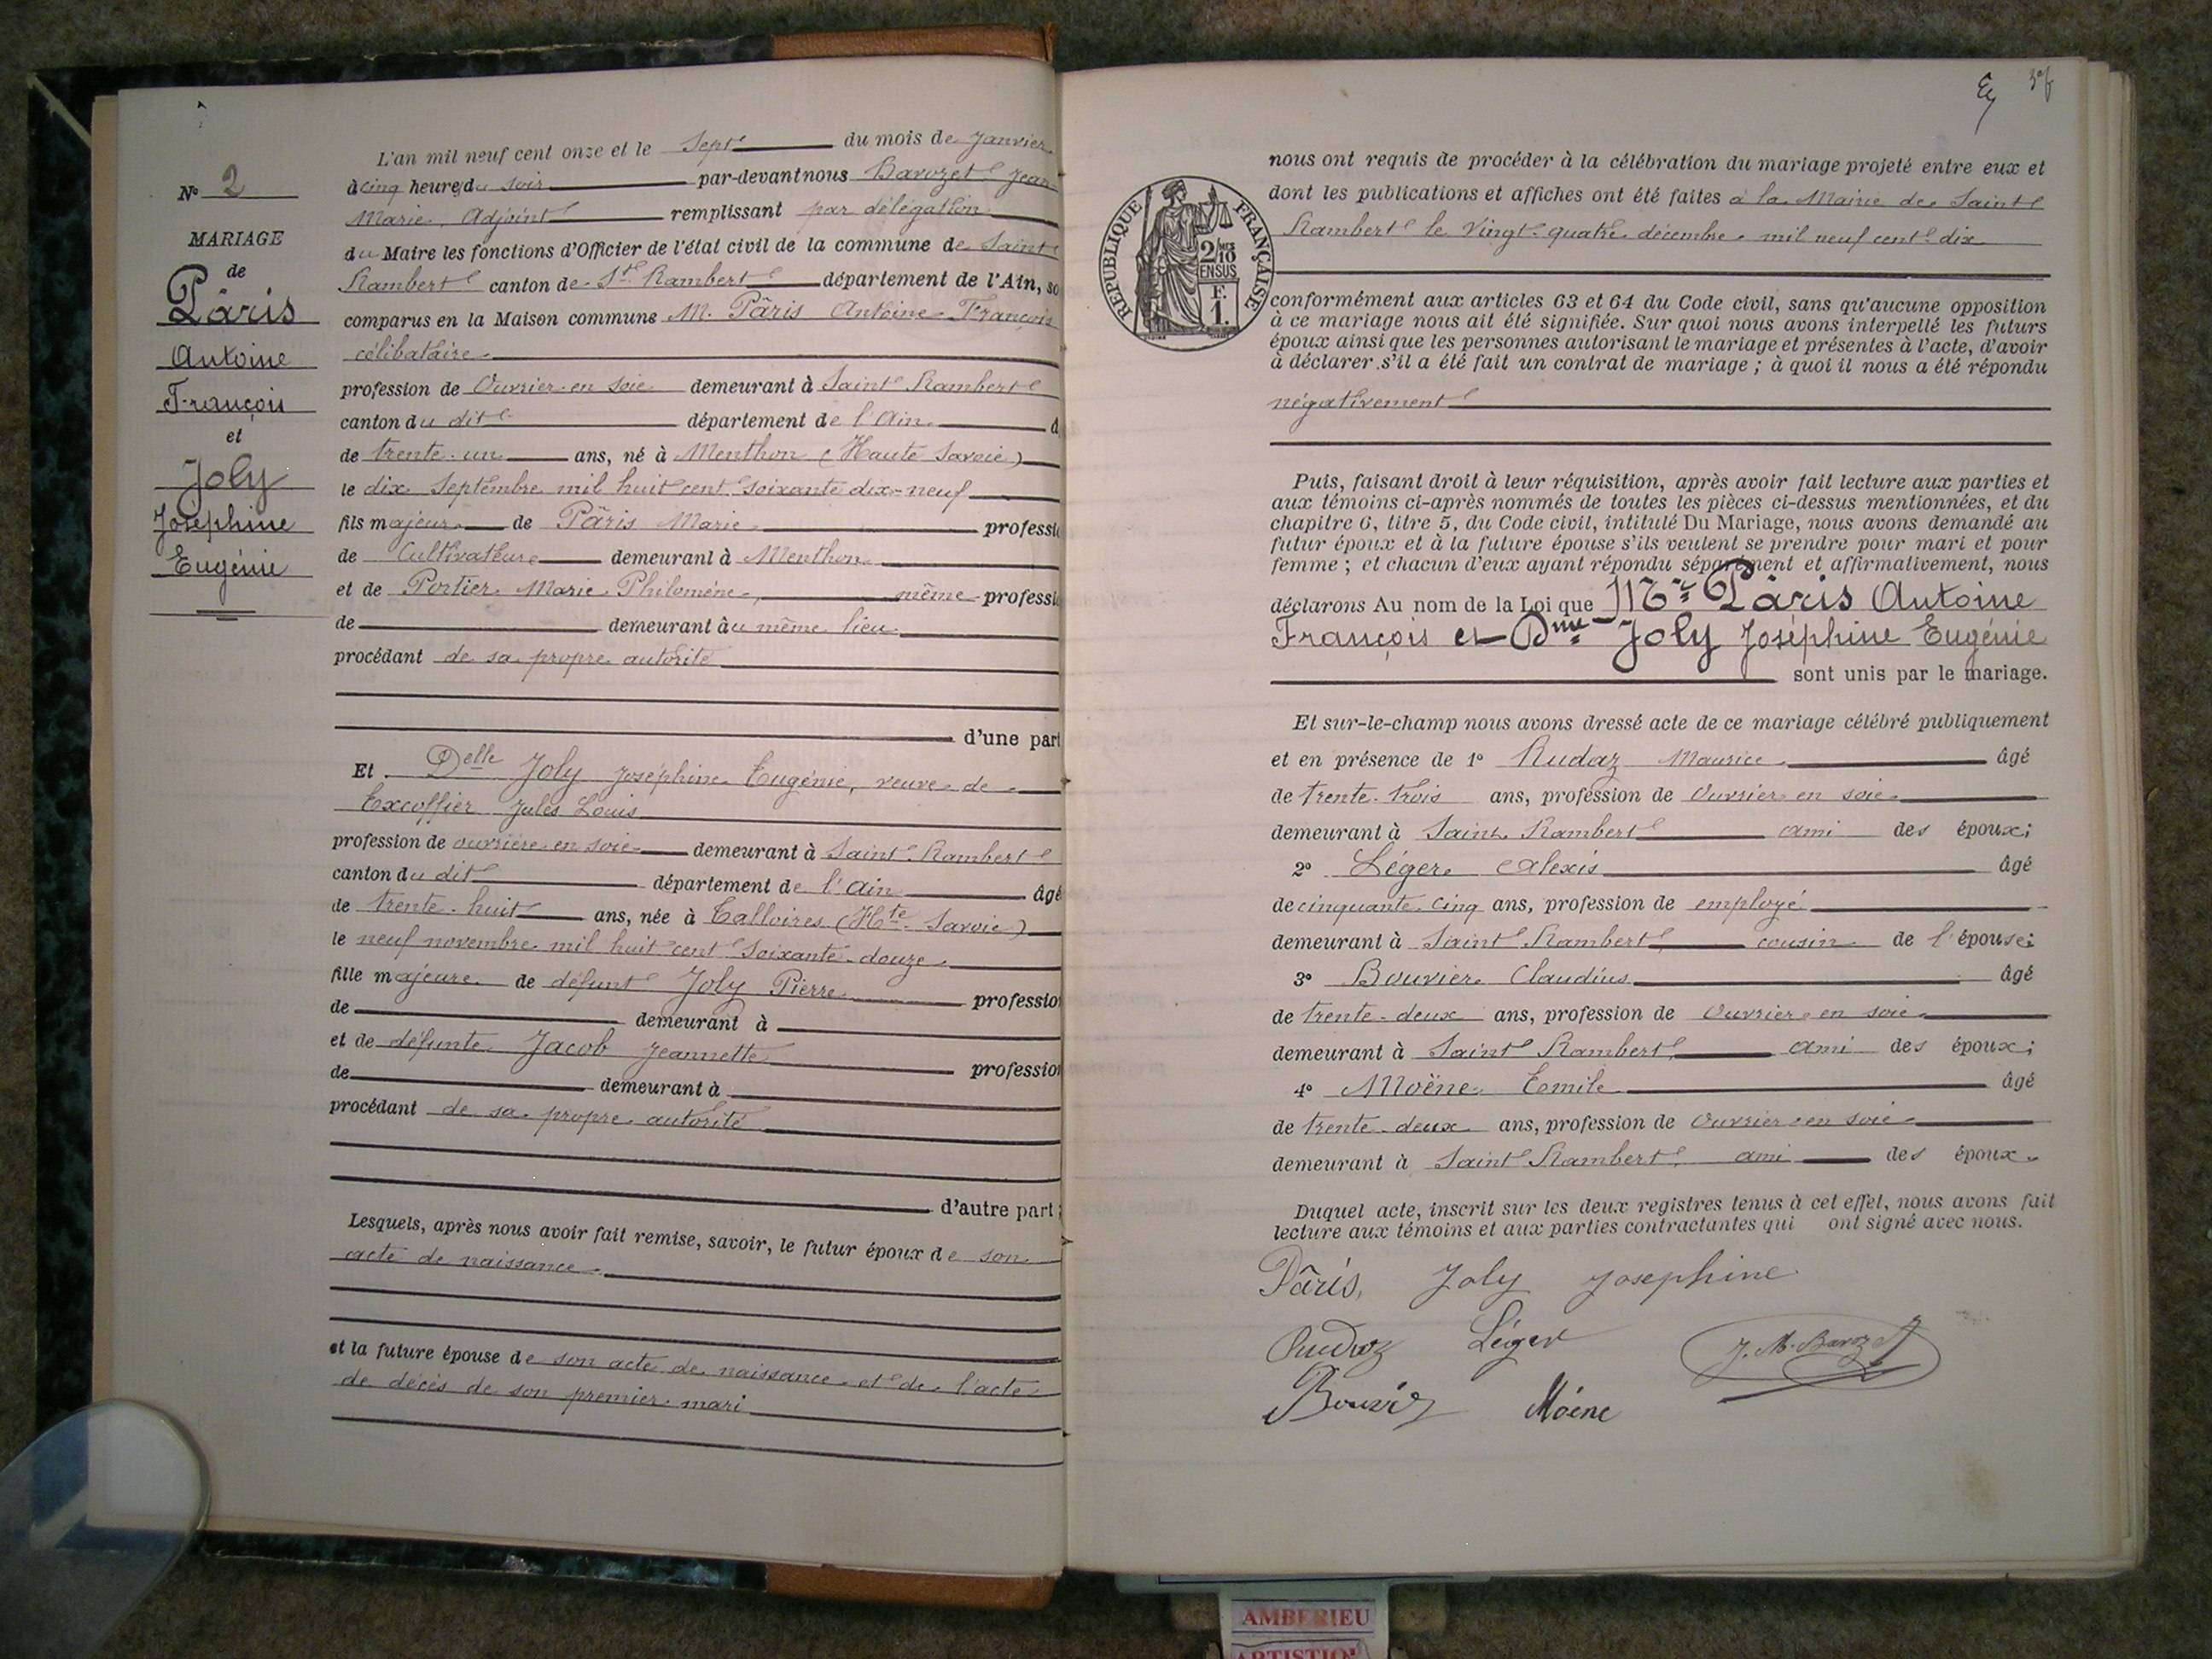 Nº 2
MARIAGE
de
Pâris
Antoine
François
et
Joly
Joséphine
Eugénie
L'an mil neuf cent onze et le Sept du mois de Janvier
à cinq heures du soir par-devant nous Barozet Jean
Marie, Adjoint remplissant par délégation
du Maire les fonctions d'Officier de l'état civil de la commune de Saint
Rambert canton de St Rambert département de l'Ain, so
comparus en la Maison commune M. Pâris Antoine François
célibataire
profession de Ouvrier en soie demeurant à Saint Rambert
canton du dit département de l'Ain
de trente-un ans, né à Menthon (Haute Savoie)
le dix Septembre mil huit cent soixante dix-neuf
fils majeur de Pâris Marie professi
de Cultivateur demeurant à Menthon
et de Portier Marie Philomène, même professi
de demeurant au même lieu
procédant de sa propre autorité
d'une part
Et Delle Joly Joséphine Eugénie, veuve de
Excoffier Jules Louis
profession de ouvrière en soie demeurant à Saint Rambert
canton du dit département de l'Ain âgé
de trente-huit ans, née à Talloires (Hte Savoie)
le neuf novembre mil huit cent soixante-douze
fille majeure de défunt Joly Pierre profession
de demeurant à
et de défunte Jacob Jeannette profession
de demeurant à
procédant de sa propre autorité
d'autre part ;
Lesquels, après nous avoir fait remise, savoir, le futur époux de son
acte de naissance
et la future épouse de son acte de naissance et de l'acte
de décès de son premier mari
nous ont requis de procéder à la célébration du mariage projeté entre eux et
dont les publications et affiches ont été faites à la Mairie de Saint
Rambert le vingt-quatre décembre mil neuf cent dix
RÉPUBLIQUE FRANÇAISE
2/10
EN SUS
F.
1.
conformément aux articles 63 et 64 du Code civil, sans qu'aucune opposition
à ce mariage nous ait été signifiée. Sur quoi nous avons interpellé les futurs
époux ainsi que les personnes autorisant le mariage et présentes à l'acte, d'avoir
à déclarer s'il a été fait un contrat de mariage ; à quoi il nous a été répondu
négativement
Puis, faisant droit à leur réquisition, après avoir fait lecture aux parties et
aux témoins ci-après nommés de toutes les pièces ci-dessus mentionnées, et du
chapitre 6, titre 5, du Code civil, intitulé Du Mariage, nous avons demandé au
futur époux et à la future épouse s'ils veulent se prendre pour mari et pour
femme ; et chacun d'eux ayant répondu séparément et affirmativement, nous
déclarons Au nom de la Loi que Mr Pâris Antoine
François et Dme Joly Joséphine Eugénie
sont unis par le mariage.
Et sur-le-champ nous avons dressé acte de ce mariage célébré publiquement
et en présence de 1º Rudaz Maurice âgé
de trente-trois ans, profession de Ouvrier en soie
demeurant à Saint Rambert ami des époux;
2º Léger Alexis âgé
de cinquante-cinq ans, profession de employé
demeurant à Saint Rambert, cousin de l'épouse;
3º Bouvier Claudius âgé
de trente-deux ans, profession de Ouvrier en soie
demeurant à Saint Rambert, ami des époux;
4º Moëne Emile âgé
de trente-deux ans, profession de Ouvrier en soie
demeurant à Saint Rambert, ami des époux.
Duquel acte, inscrit sur les deux registres tenus à cet effet, nous avons fait
lecture aux témoins et aux parties contractantes qui ont signé avec nous.
Pâris, Joly Josephine
Rudaz Léger J. M. Barozet
Bouvier Moëne
AMBERIEU